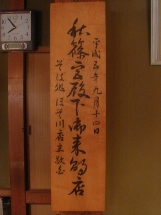 平成五年九月十四日
秋篠宮殿下御来館店
そば処 ほそ川店主敬白